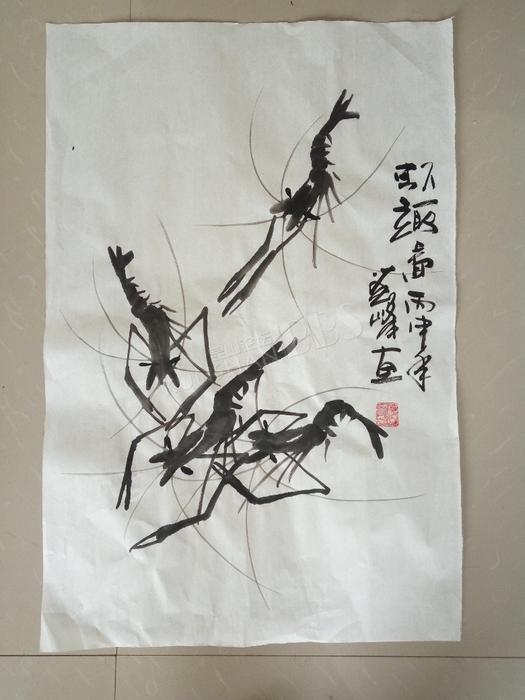 虾趣图丙申年
峰画